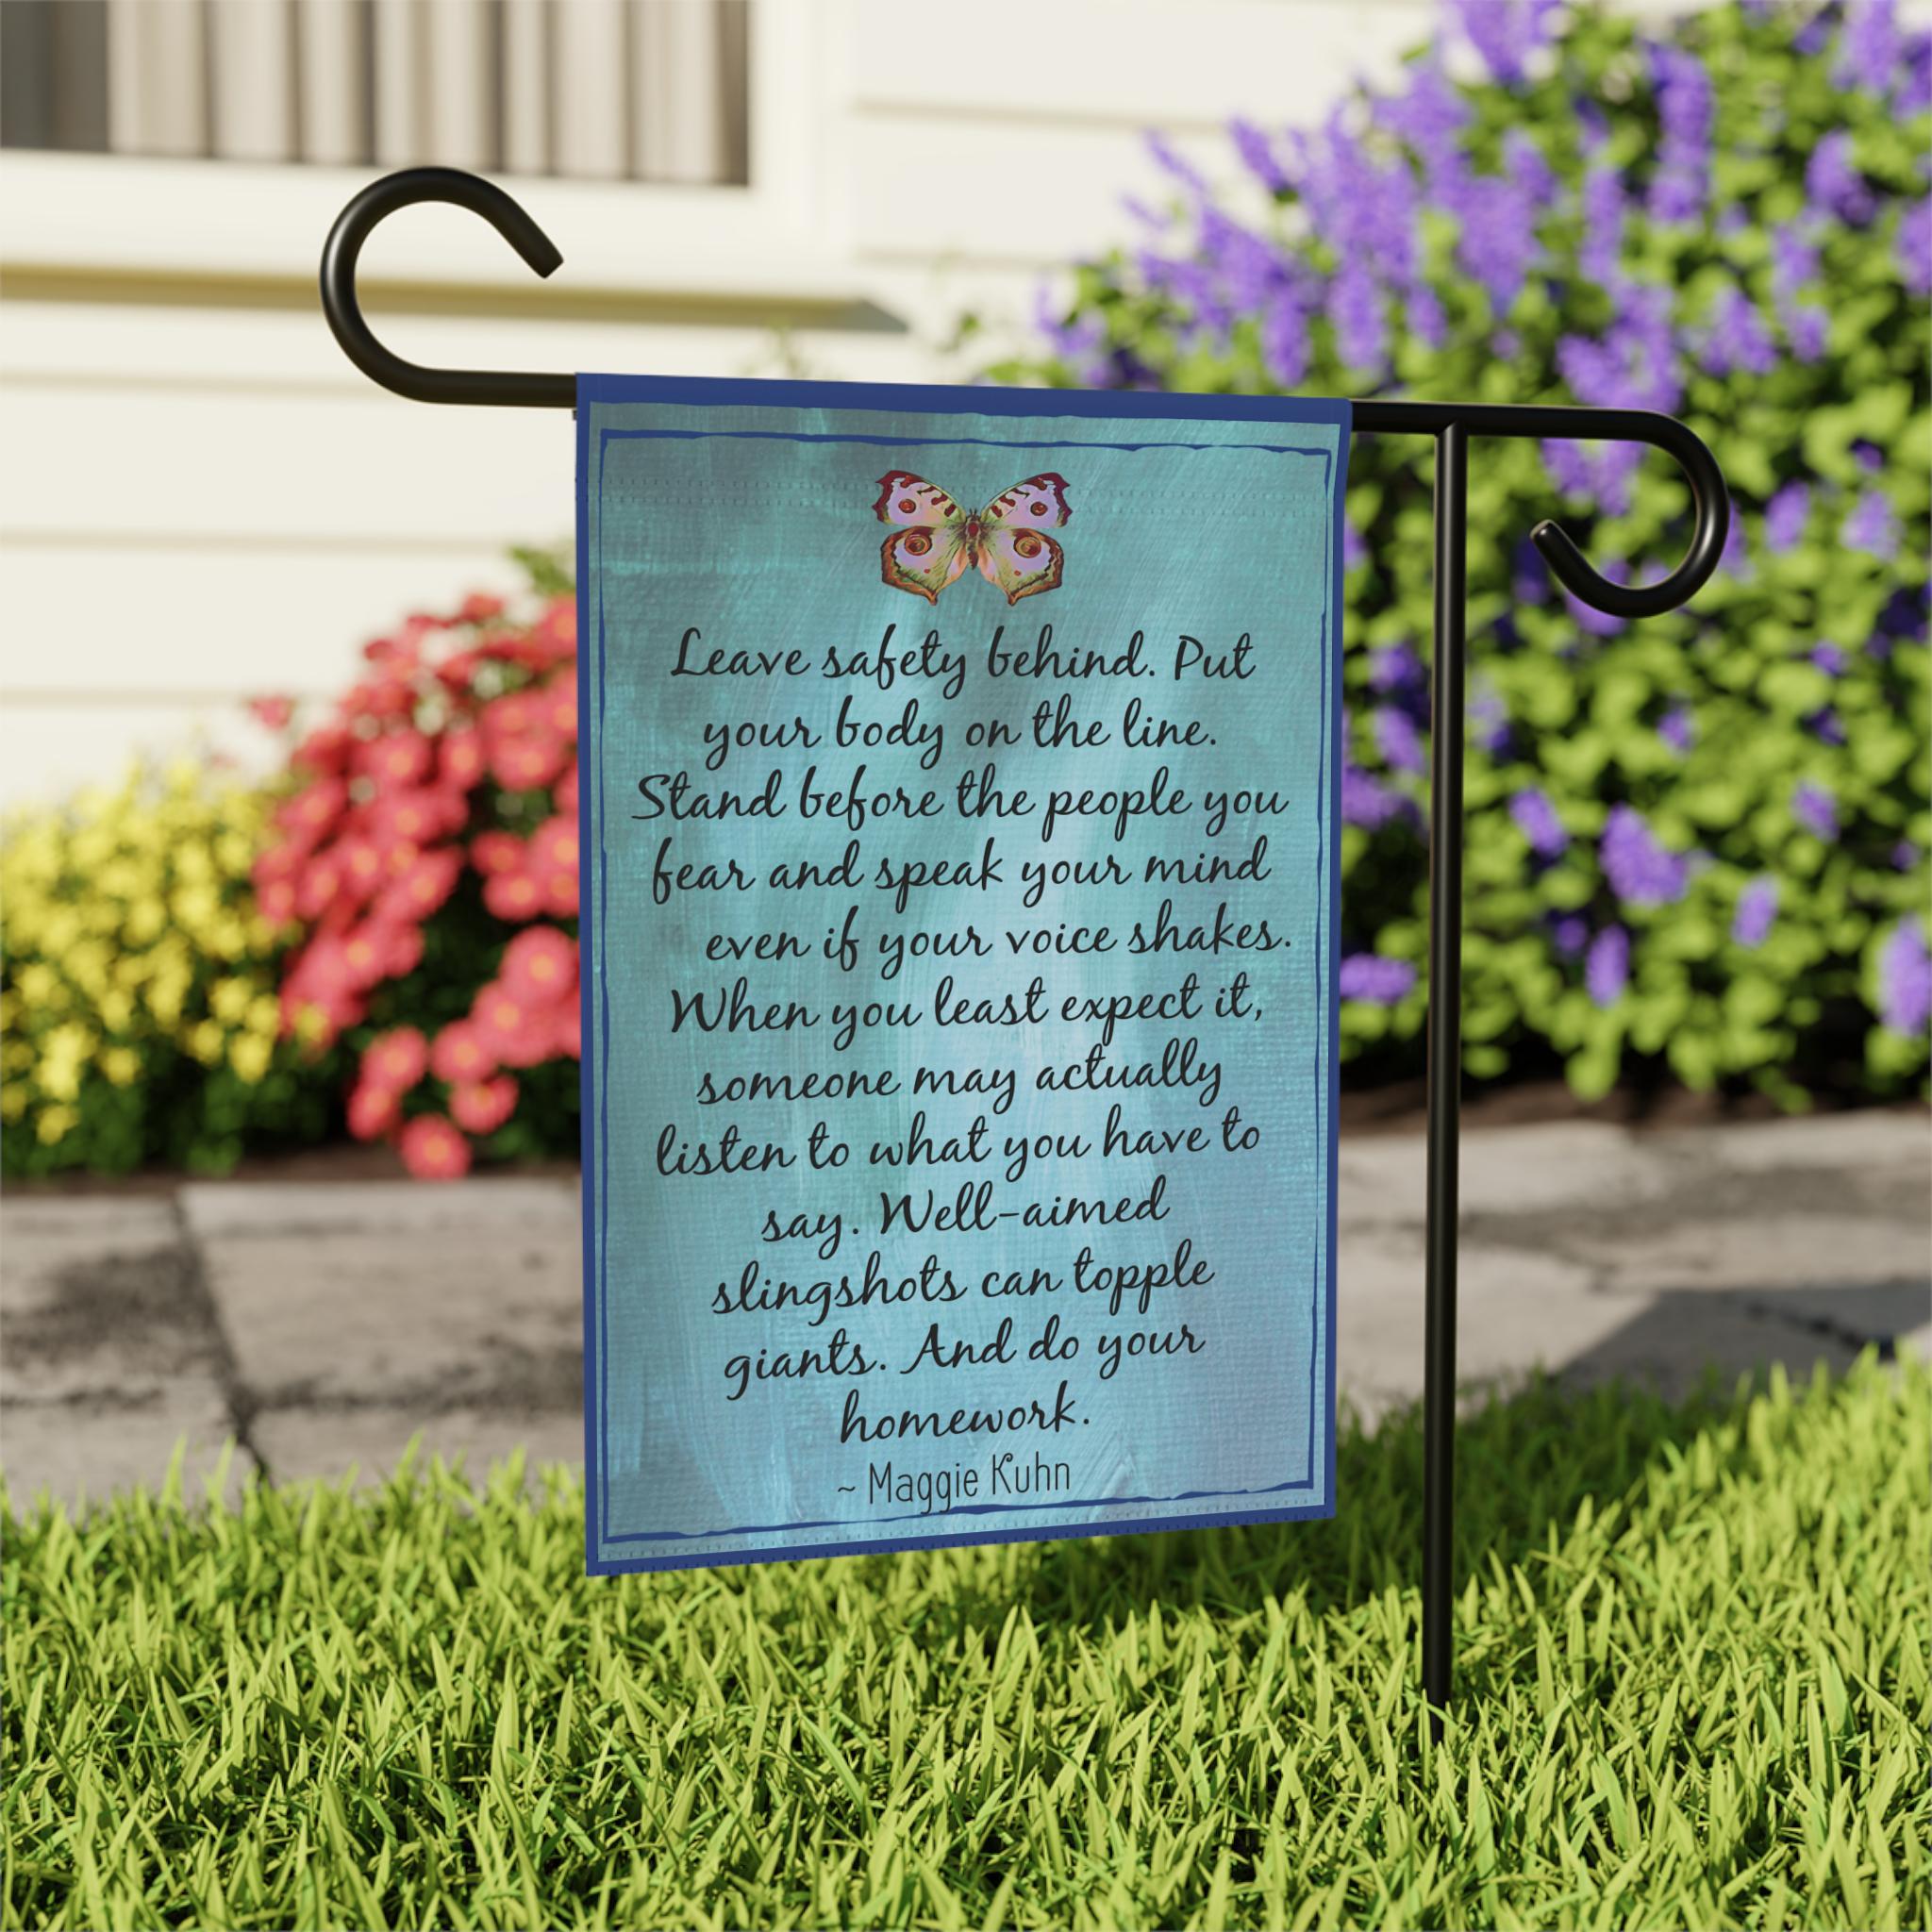 Leave safety behind. Put
your body on the line.
Stand before the people you
fear and speak your mind
even if your voice shakes.
When you least expect it,
someone may actually
listen to what you have to
say. Well-aimed
slingshots can topple
giants. And do your
homework.
~ Maggie Kuhn